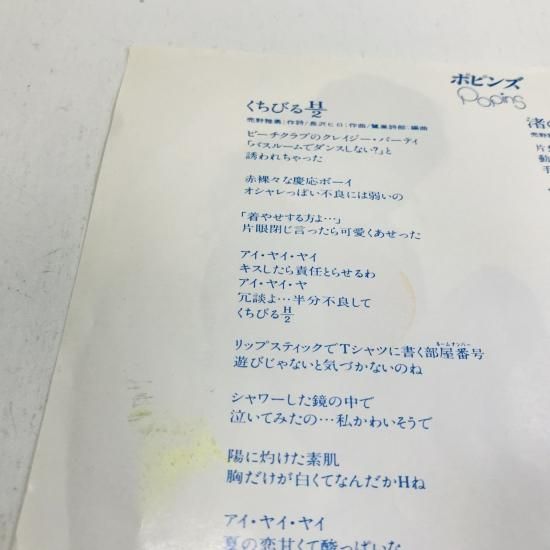 ポピンズ
Popins
くちびるH/2
売野雅勇:作詩/長沢ヒロ:作曲/鷺巣詩郎:編曲
ビーチクラブのクレイジー・パーティ
「バスルームでダンスしない?」と
誘われちゃった
赤裸々な慶応ボーイ
オシャレっぽい不良には弱いの
「着やせする方よ…」
片眼閉じ言ったら可愛くあせった
アイ・ヤイ・ヤイ
キスしたら責任とらせるわ
アイ・ヤイ・ヤ
冗談よ…半分不良して
くちびるH/2
ルームナンバー
リップスティックでTシャツに書く部屋番号
遊びじゃないと気づかないのね
シャワーした鏡の中で
泣いてみたの…私かわいそうで
陽に灼けた素肌
胸だけが白くてなんだかHね
アイ・ヤイ・ヤイ
夏の恋甘くて酸っぱいな
渚の
売野
片
動
手